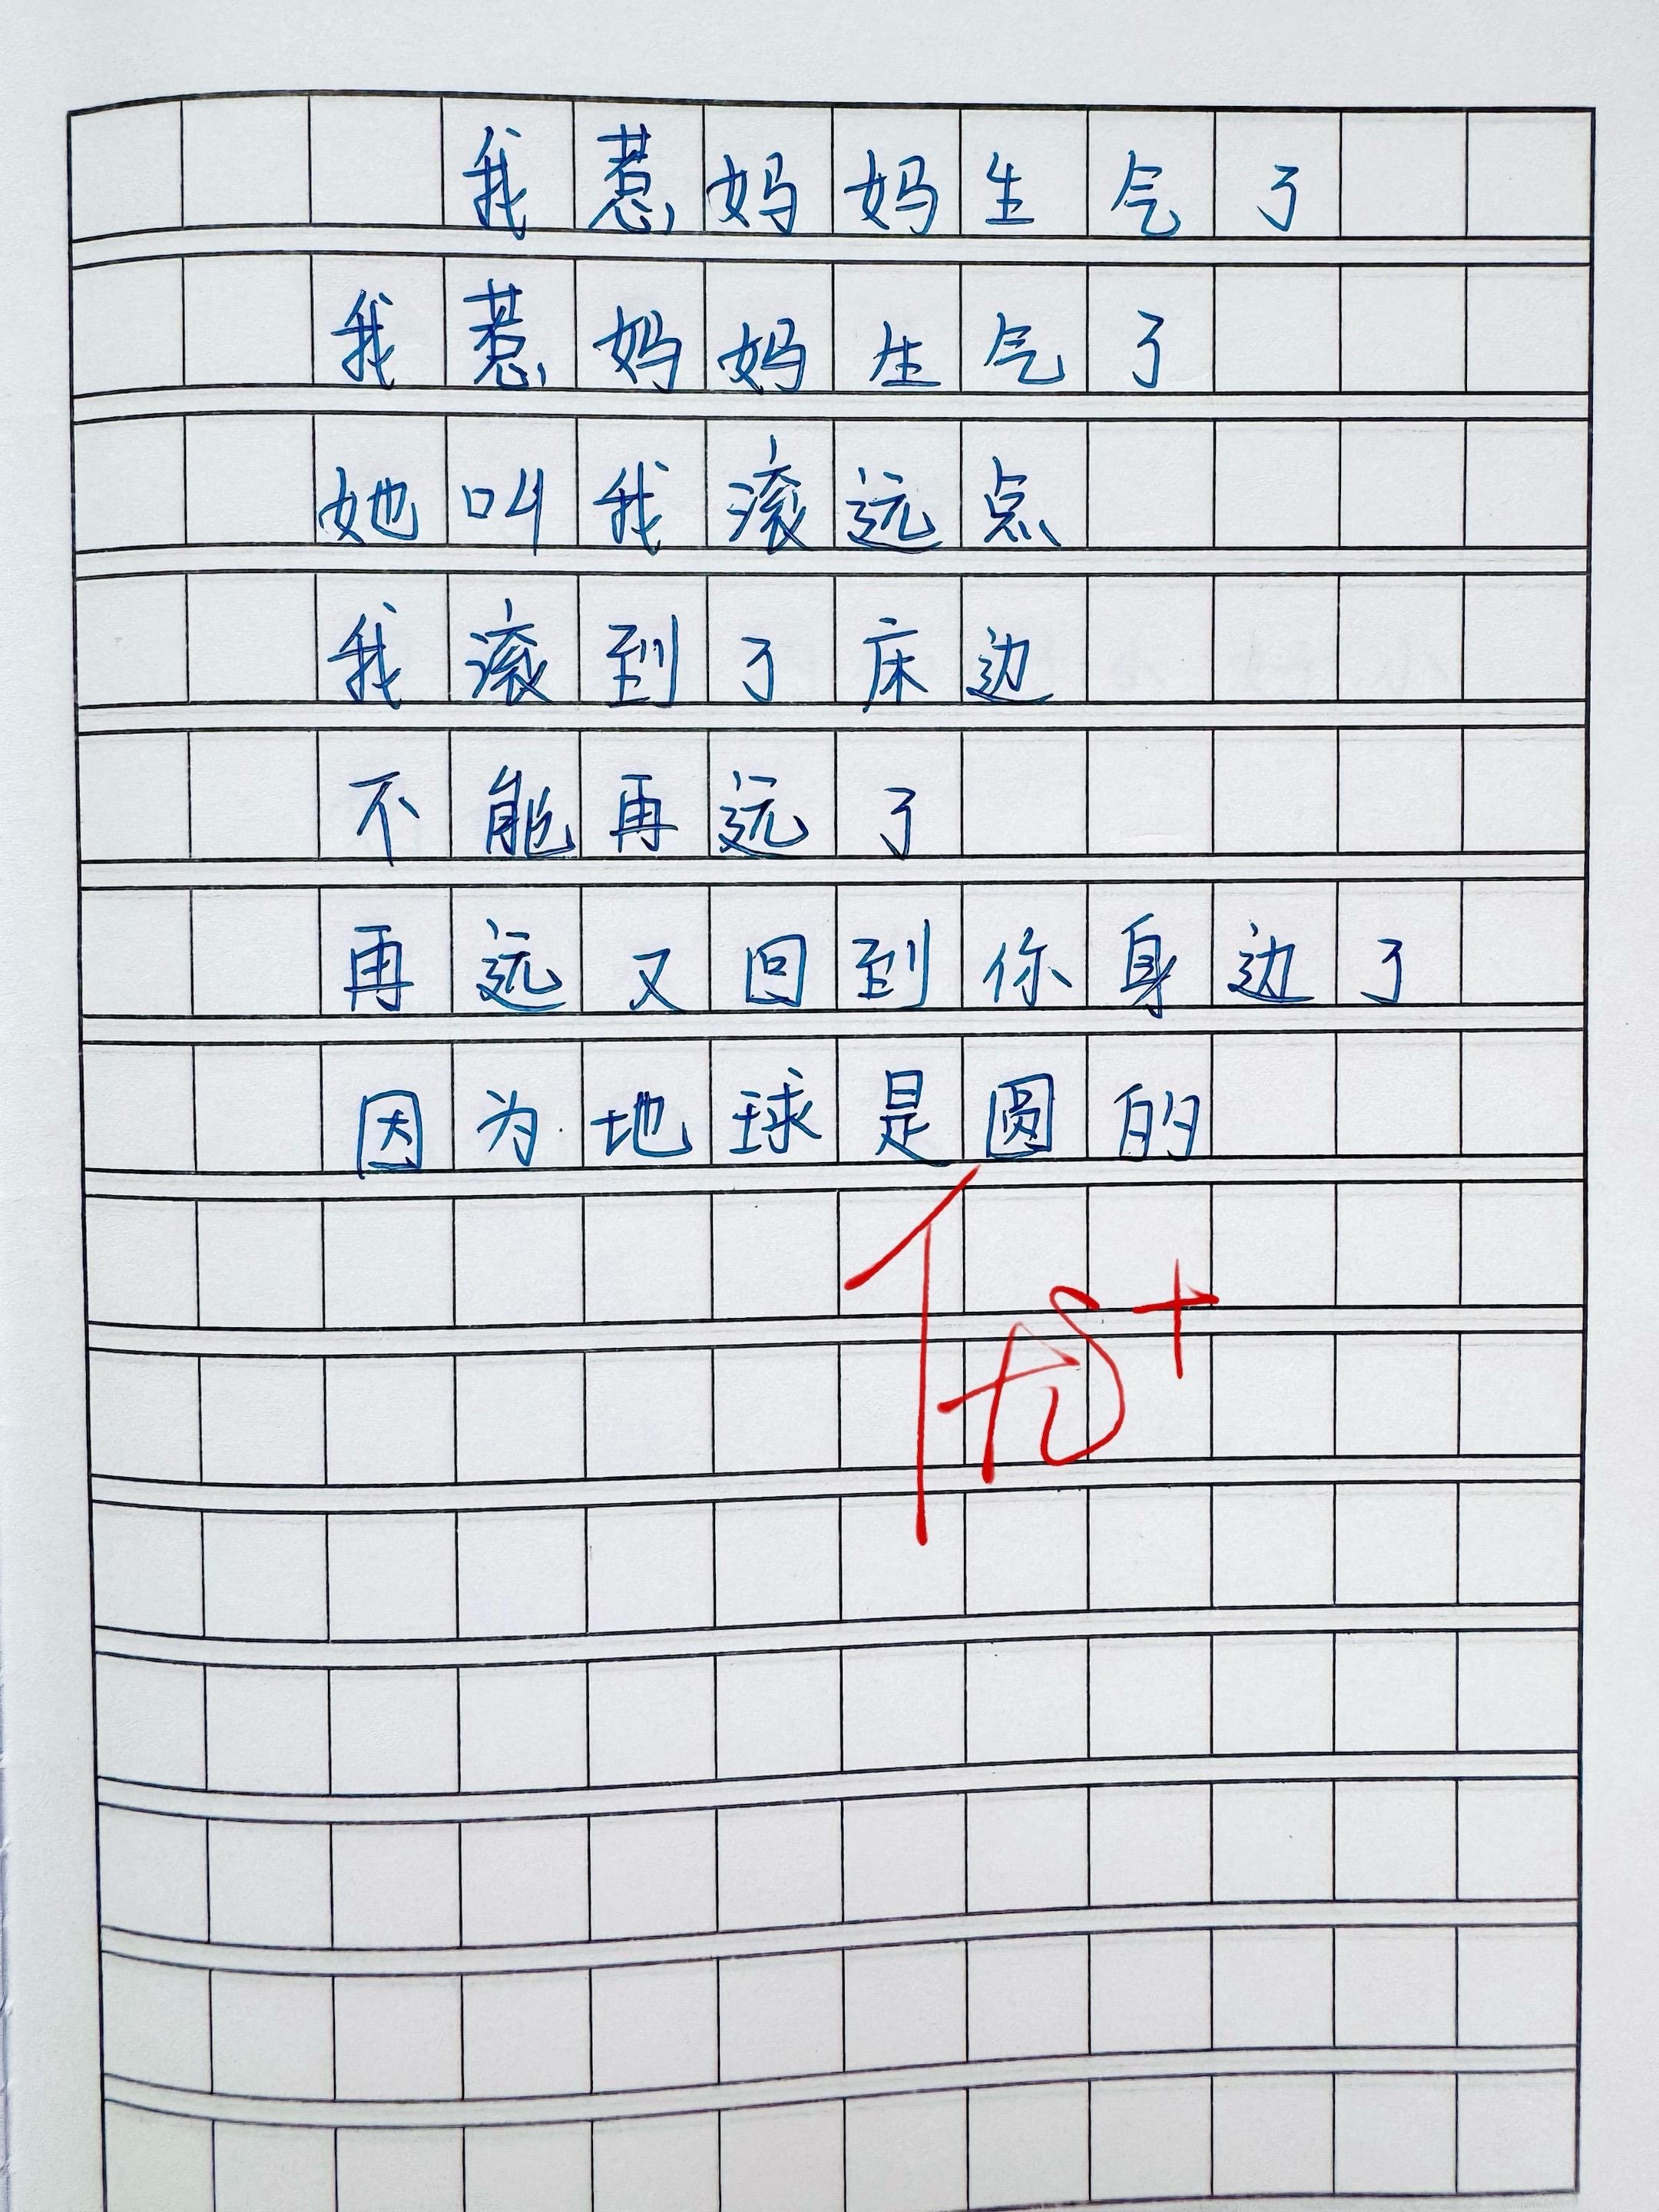 我惹妈妈生气了
我惹妈妈生气了
她叫我滚远点
我滚到了床边
不能再远了
再远又回到你身边了
因为地球是圆的
优+